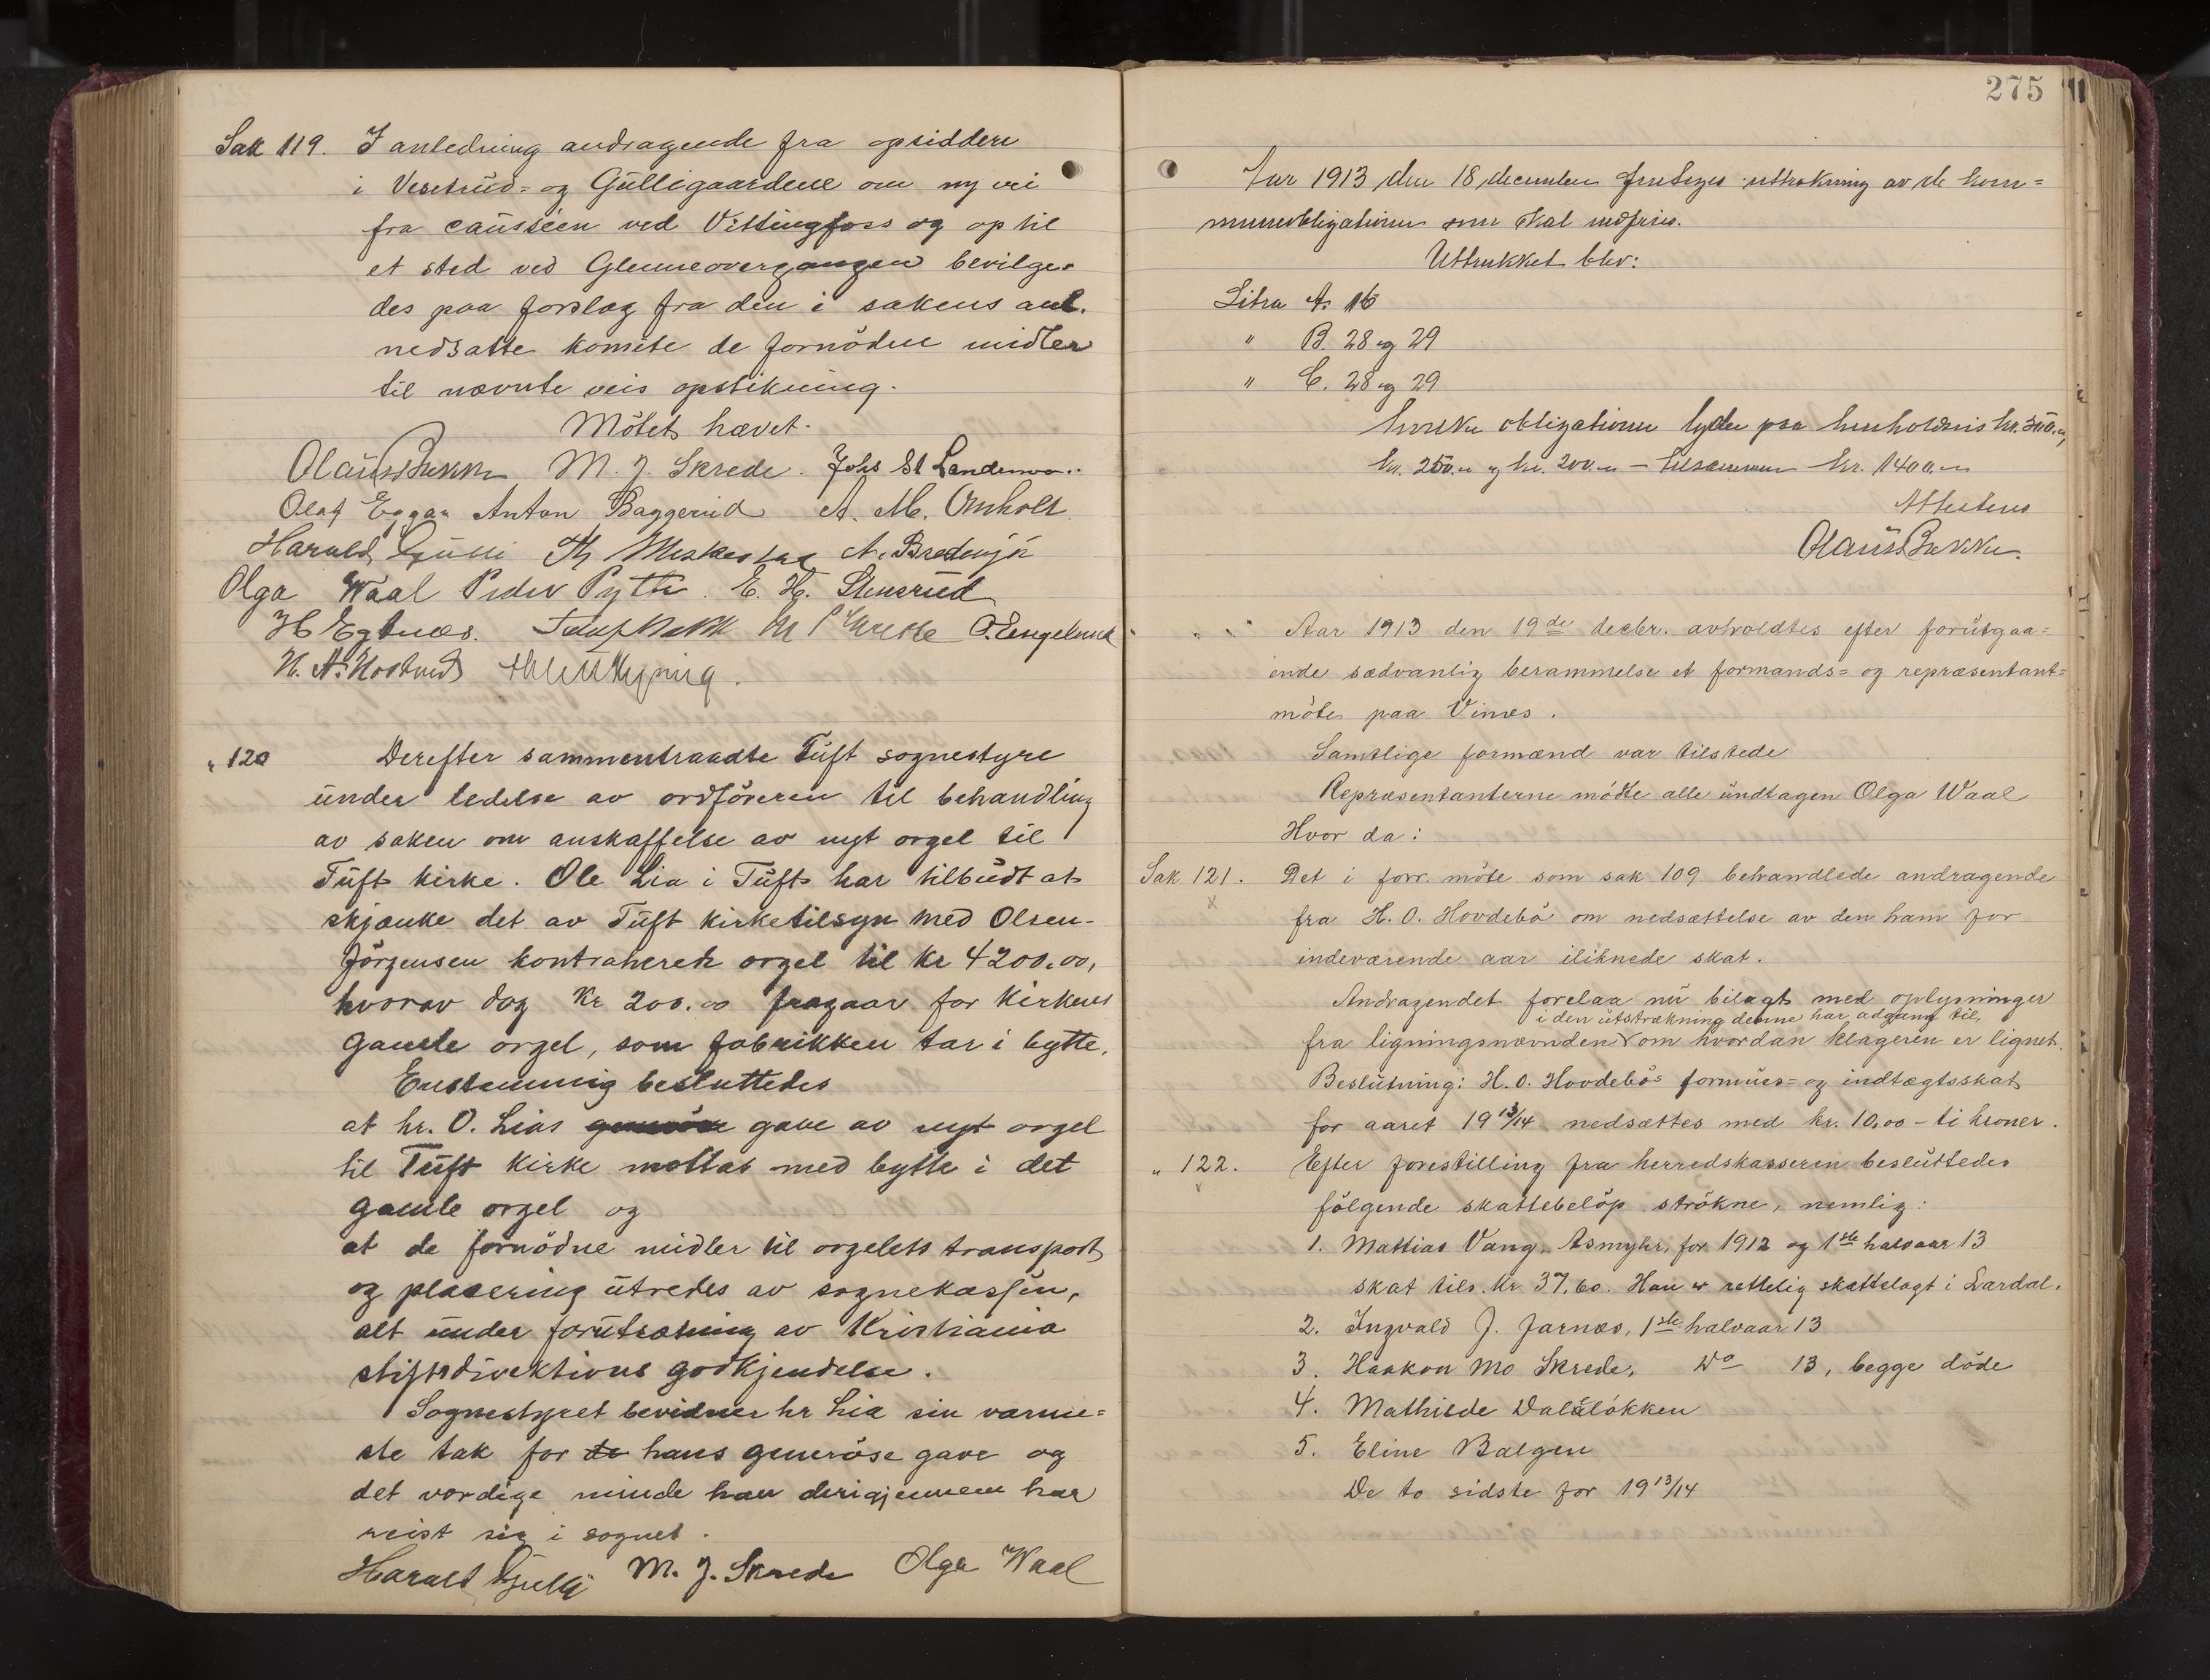 Sak 119. I anledning andragende fra opsiddere
i Vesetrud- og Gulligaardene om ny vei
fra causséen ved Vittingfoss og op til
et sted ved Glenneovergangen bevilge=
des paa forslag fra den i sakens anl.
nedsatte komite de fornödne midler
til nævnte veis opstikning.
Mötet hævet.
Olaus Bakke M. J. Skrede. Johs St
Olaf Eggar Anton Baggerud A. M. Omholt
Harald Gulli Th A. Bredesjö
Olga Waal Peder Pytte. E. H. Stensrud
H Egtnæs. O. Engelund
N. A.
" 120 Derefter sammentraadte Tuft sognestyre
under ledelse av ordföreren til behandling
av saken om anskaffelse av nyt orgel til
Tuft kirke. Ole Lia i Tuft har tilbudt at
skjænke det av Tuft kirketilsyn med Olsen-
Jörgensen kontraherete orgel til kr 4200.00,
hvorav dog kr 200.00 fragaar for kirkens
gamle orgel, som fabrikken tar i bytte.
Enstemmig besluttedes
at hr. O. Lias gave av nyt orgel
til Tuft kirke mottas med bytte i det
gamle orgel og
at de fornödne midler til orgelets transport
og placering utredes av sognekassen,
alt under forutsætning av Kristiania
stiftsdirektions godkjendelse.
Sognestyret bevidner hr Lia sin varme=
ste tak for de hans generöse gave og
det værdige minde han derigjennem har
reist sig i sognet.
Harald Gulli M. J. Skrede Olga Waal
275
Aar 1913 den 18 december foretoges uttrækning av de kom=
muneobligationer som skal indfries.
Uttrukket blev:
Litra A. 16
" B. 28 og 29
" C. 28 og 29
hvilke obligationer lyder paa henholdsvis kr. 500.-,
kr. 250.- og kr. 200.- - tilsammen kr. 1400.-
Attesteres
Olaus Bakke.
Aar 1913 den 19de decbr. avholdtes efter forutgaa=
ende sædvanlig berammelse et formands= og repræsentant=
möte paa Vinæs.
Samtlige formænd var tilstede
Repræsentanterne mödte alle undtagen Olga Waal
Hvor da:
Sak 121. Det i forr. möte som sak 109 behandlede andragende
fra H. O. Hovdebö om nedsættelse av den ham for
indeværende aar iliknede skat.
Andragendet forelaa nu bilagt med oplysninger
i den utstrækning denne har adgang til,
fra ligningsnævnden om hvordan klageren er lignet.
Beslutning: H. O. Hovdebös formues= og indtægtsskat
for aaret 1913/14 nedsættes med kr. 10,00 - ti kroner.
" 122. Efter forestilling fra herredskasseren besluttedes
fölgende skattebelöp strökne, nemlig:
1. Mattias Vang, Asmyhr, for 1912 og 1ste halvaar 13
skat tils. kr 37,60. Han er rettelig skattelagt i Lardal.
2. Ingvald J. Jarnæs, 1ste halvaar 13
3. Haakon Mo Skrede, Do 13, begge döde
4. Mathilde Dalslökken
5. Eline Balgen
De to sidste for 1913/14